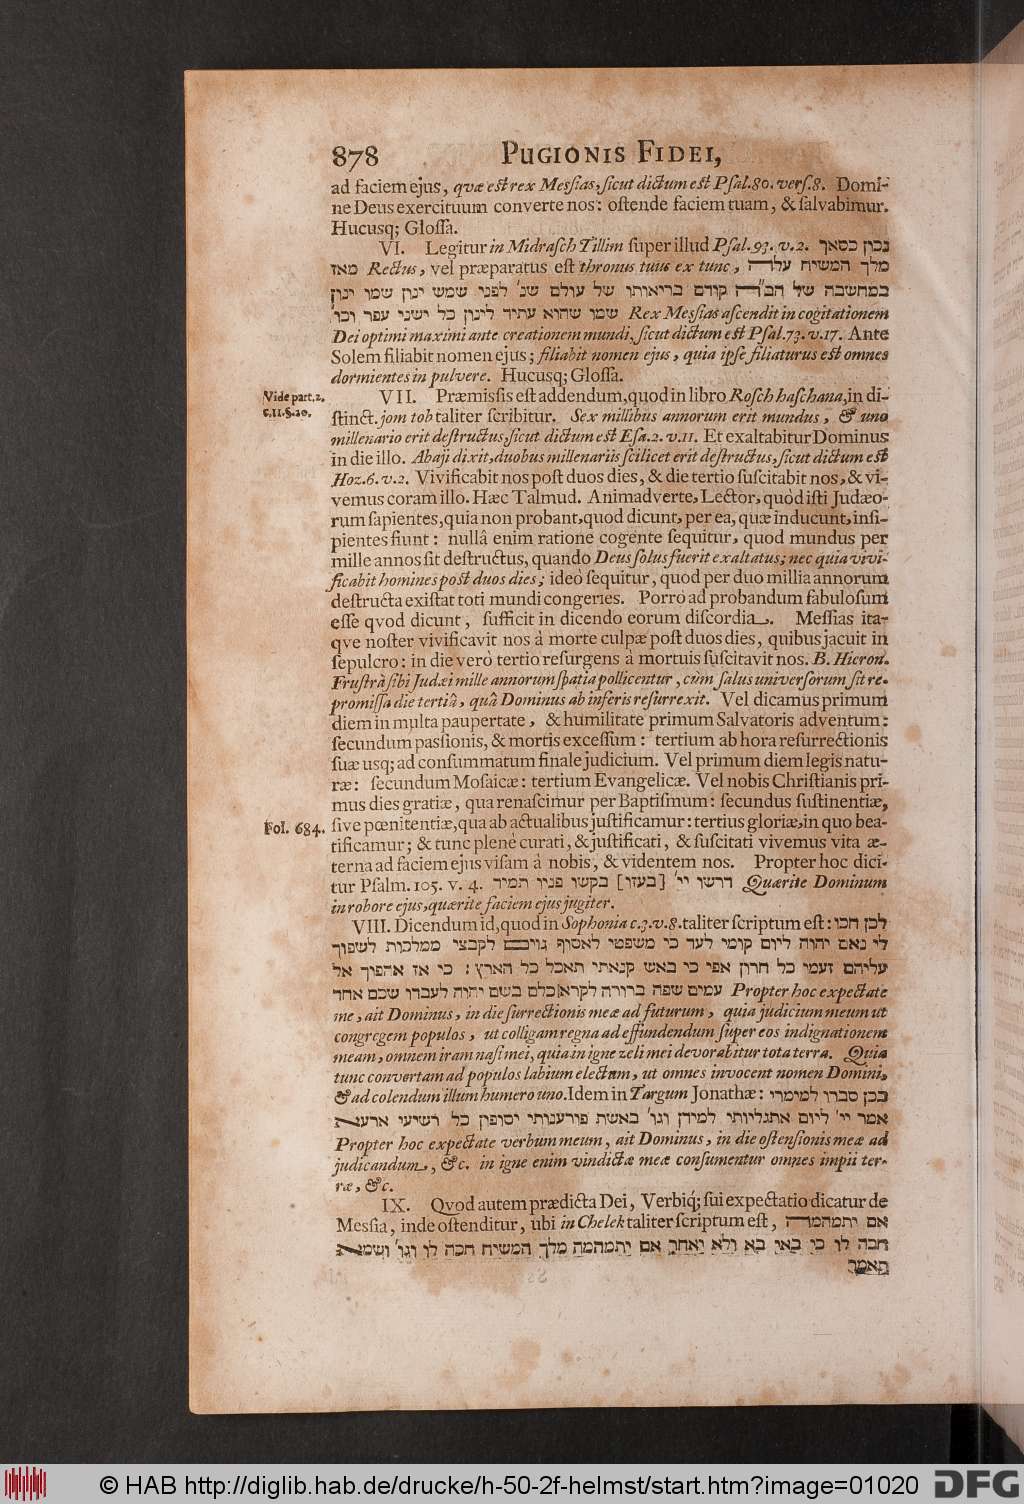 878 PUGIONIS FIDEI,
ad faciem ejus, quæ est rex Messias, sicut dictum est Psal. 80. vers. 8. Domi-
ne Deus exercituum converte nos: ostende faciem tuam, & salvabimur.
Hucusq; Glossa.
VI. Legitur in Midrasch Tillim super illud Psal. 93. v. 2. נכון כסאך
מאז Rectus, vel præparatus est thronus tuus ex tunc, מלך המשיח עלה
במחשבה של הב"ה קודם בריאותו של עולם שנ' לפני שמש ינון שמו ינון
שמו שהוא עתיד לינון כל ישיני עפר וכו' Rex Messias ascendit in cogitationem
Dei optimi maximi ante creationem mundi, sicut dictum est Psal. 73. v. 17. Ante
Solem filiabit nomen ejus; filiabit nomen ejus, quia ipse filiaturus est omnes
dormientes in pulvere. Hucusq; Glossa.
Vide part. 2.
c. 11. §. 20.
VII. Præmissis est addendum, quod in libro Rosch haschana, in di-
stinct. jom tob taliter scribitur. Sex millibus annorum erit mundus, & uno
millenario erit destructus, sicut dictum est Esa. 2. v. 11. Et exaltabitur Dominus
in die illo. Abaji dixit, duobus millenariis scilicet erit destructus, sicut dictum est
Hoz. 6. v. 2. Vivificabit nos post duos dies, & die tertio suscitabit nos, & vi-
vemus coram illo. Hæc Talmud. Animadverte, Lector, quòd isti Judæo-
rum sapientes, quia non probant, quod dicunt, per ea, quæ inducunt, insi-
pientes fiunt: nullâ enim ratione cogente sequitur, quod mundus per
mille annos sit destructus, quando Deus solus fuerit exaltatus; nec quia vivi-
ficabit homines post duos dies; ideò sequitur, quod per duo millia annorum
destructa existat toti mundi congeries. Porrò ad probandum fabulosum
esse qvod dicunt, sufficit in dicendo eorum discordia. Messias ita-
qve noster vivificavit nos à morte culpæ post duos dies, quibus jacuit in
sepulcro: in die verò tertio resurgens à mortuis suscitavit nos. B. Hieron.
Frustrà sibi Judæi mille annorum spatia pollicentur, cùm salus universorum sit re-
promissa die tertiâ, quâ Dominus ab inferis resurrexit. Vel dicamus primum
diem in multa paupertate, & humilitate primum Salvatoris adventum:
secundum passionis, & mortis excessum: tertium ab hora resurrectionis
suæ usq; ad consummatum finale judicium. Vel primum diem legis natu-
ræ: secundum Mosaicæ: tertium Evangelicæ. Vel nobis Christianis pri-
mus dies gratiæ, qua renascimur per Baptismum: secundus sustinentiæ,
Fol. 684.
sive pœnitentiæ, qua ab actualibus justificamur: tertius gloriæ, in quo bea-
tificamur; & tunc plenè curati, & justificati, & suscitati vivemus vita æ-
terna ad faciem ejus visam à nobis, & videntem nos. Propter hoc dici-
tur Psalm. 105. v. 4. דרשו יי' [בעזו] בקשו פניו תמיד Quærite Dominum
in robore ejus, quærite faciem ejus jugiter.
VIII. Dicendum id, quod in Sophonia c. 3. v. 8. taliter scriptum est: לכן חכו
לי נאם יהוה ליום קומי לעד כי משפטי לאסוף גוים לקבצי ממלכות לשפוך
עליהם זעמי כל חרון אפי כי באש קנאתי תאכל כל הארץ: כי אז אהפוך אל
עמים שפה ברורה לקרא כלם בשם יהוה לעבדו שכם אחד Propter hoc expectate
me, ait Dominus, in die surrectionis meæ ad futurum, quia judicium meum ut
congregem populos, ut colligam regna ad effundendum super eos indignationem
meam, omnem iram nasi mei, quia in igne zeli mei devorabitur tota terra. Quia
tunc convertam ad populos labium electum, ut omnes invocent nomen Domini,
& ad colendum illum humero uno. Idem in Targum Jonathæ: בכן סברו למימרי
אמר יי' ליום אתגליותי למידן וגו' באשת פורענותי יסופון כל רשיעי ארעא
Propter hoc expectate verbum meum, ait Dominus, in die ostensionis meæ ad
judicandum, &c. in igne enim vindictæ meæ consumentur omnes impii ter-
ræ, &c.
IX. Qvod autem prædicta Dei, Verbiq; sui expectatio dicatur de
Messia, inde ostenditur, ubi in Chelek taliter scriptum est, אם יתמהמה
חכה לו כי באו בא ולא יאחר אם יתמהמה מלך המשיח חכה לו וגו' ושמא
תאמר
© HAB http://diglib.hab.de/drucke/h-50-2f-helmst/start.htm?image=01020 DFG